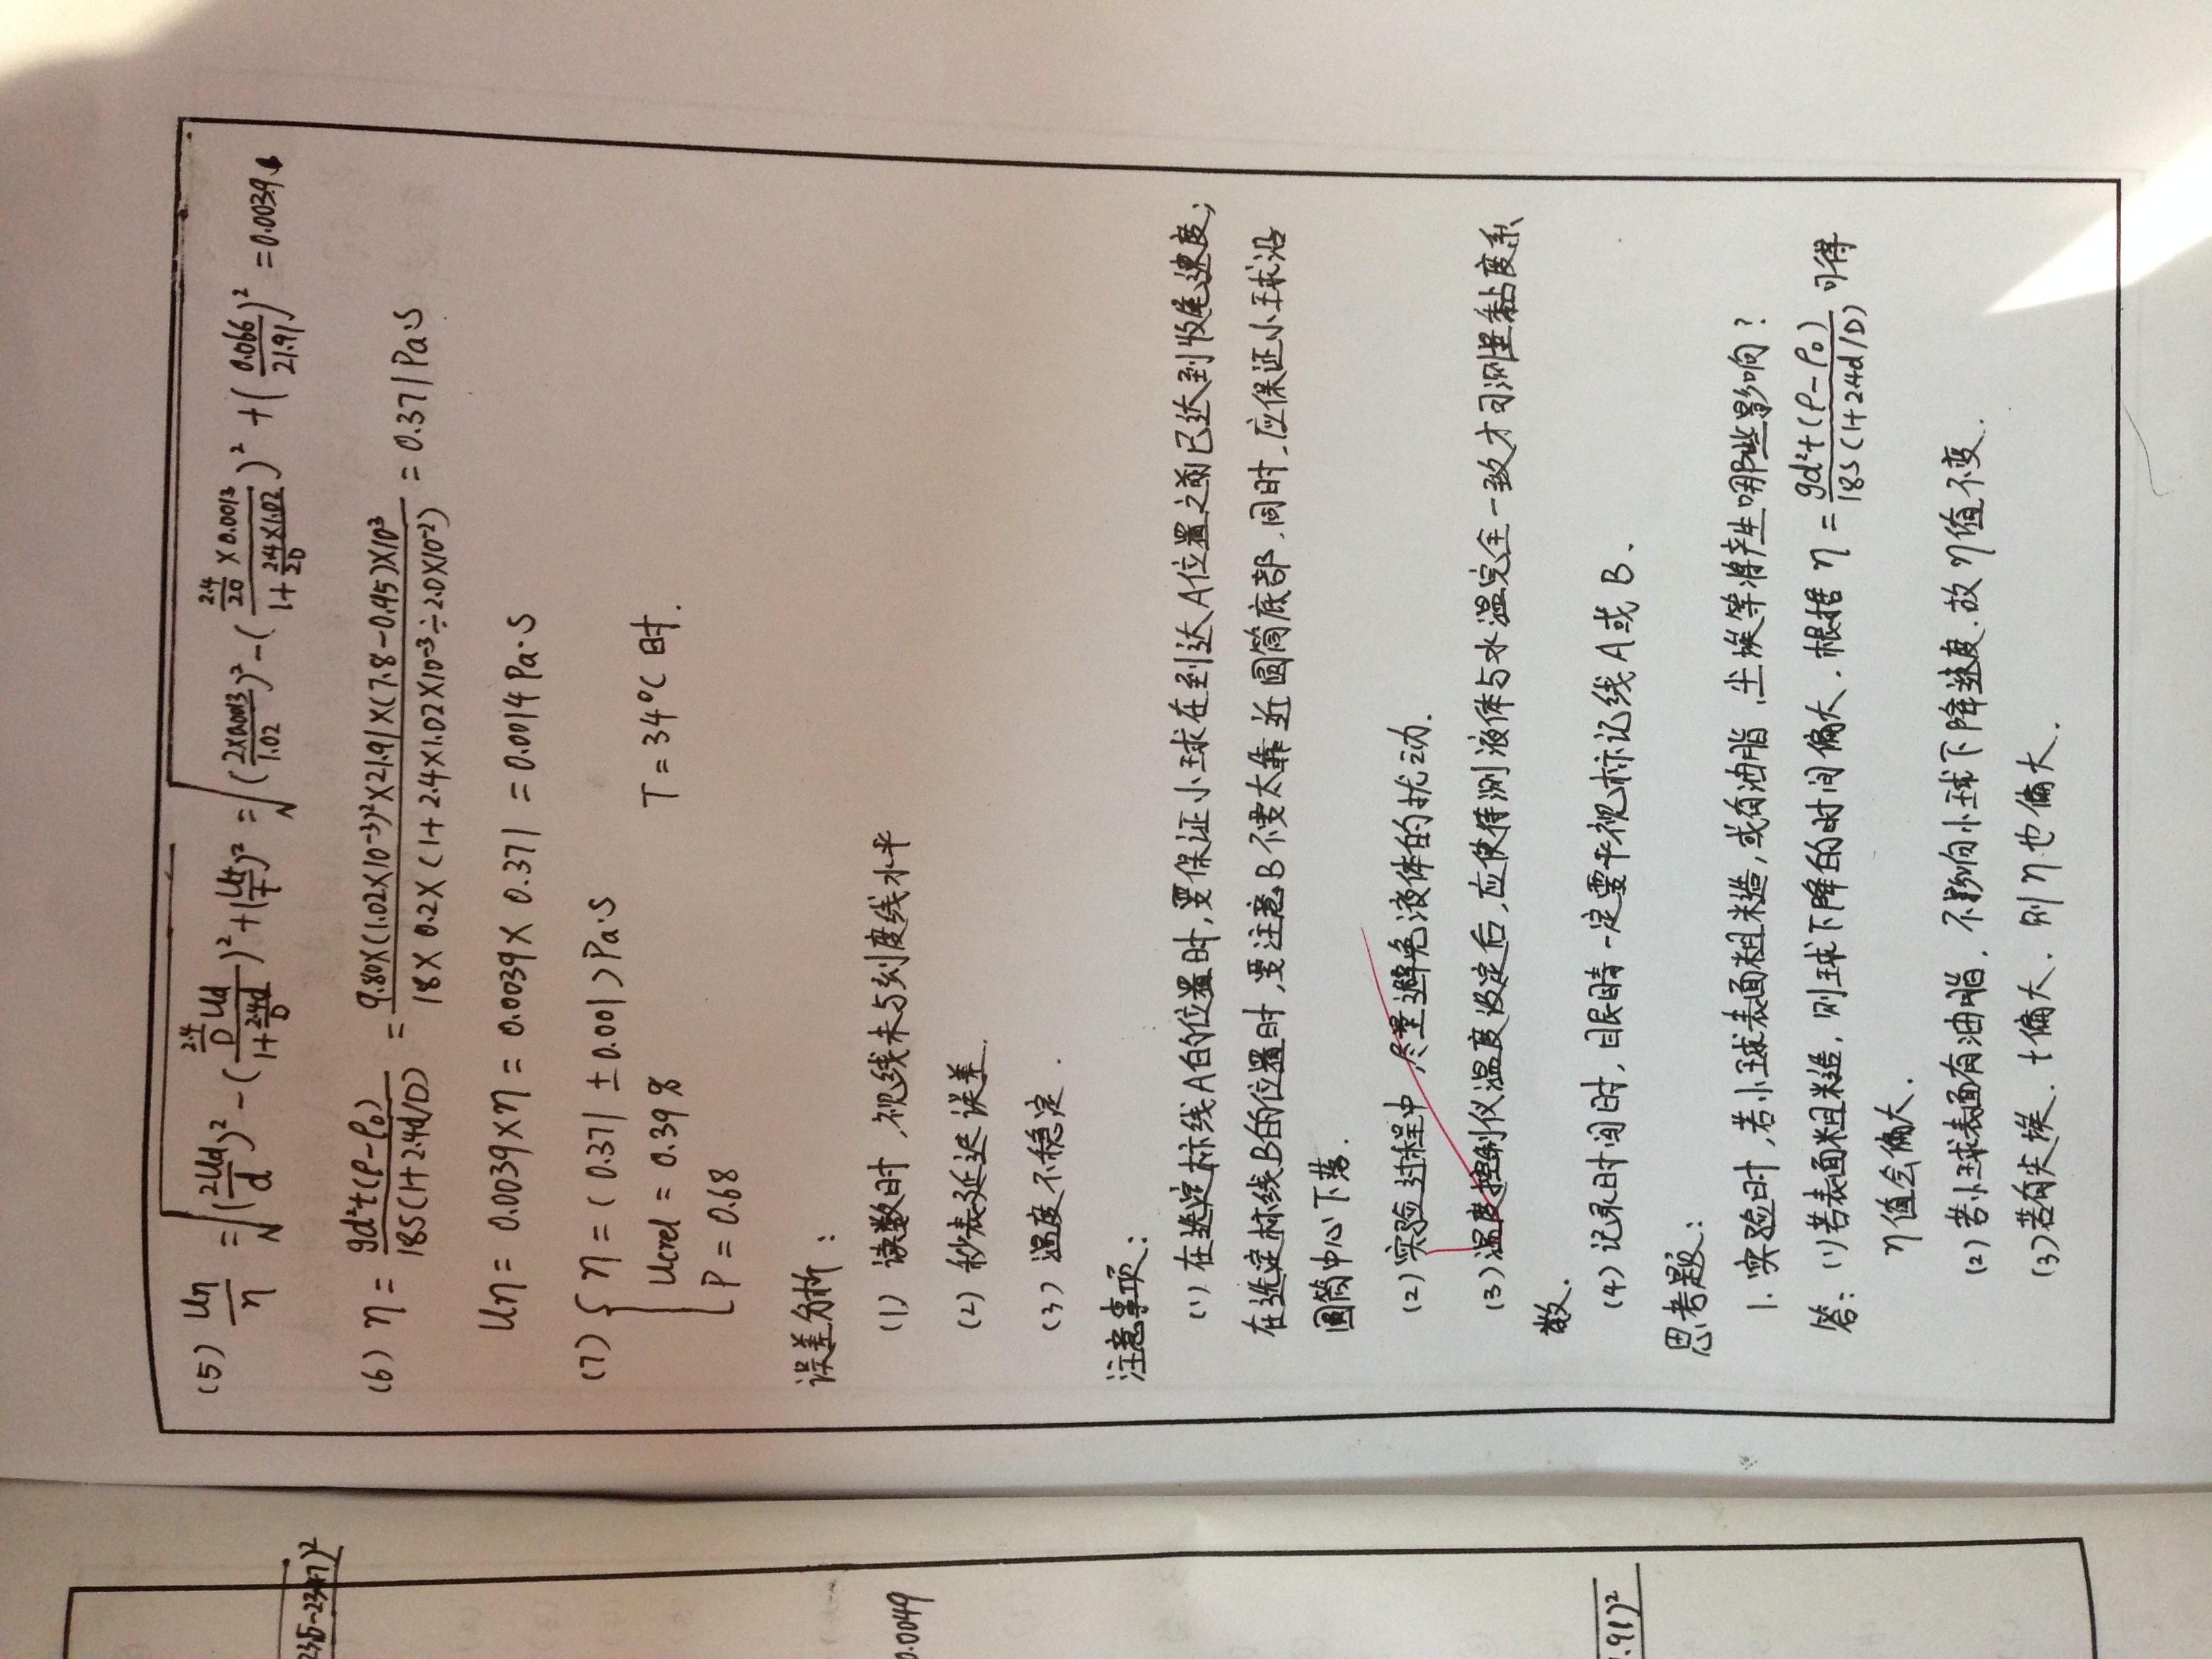 .91)²
0.0049
(5) Uη/η = √((2Ud/d)² - ((2.4/D Ud)/(1+2.4d/D))² + (Ut/t)²) = √((2×0.0013/1.02)² - ((2.4/20 × 0.0013)/(1+2.4×1.02/20))² + (0.066/21.91)²) = 0.0039
(6) η = gd²t(ρ-ρ₀)/18S(1+2.4d/D) = 9.80×(1.02×10⁻³)²×21.91×(7.8-0.95)×10³/18×0.2×(1+2.4×1.02×10⁻³÷2.0×10⁻²) = 0.371Pa·S
Uη = 0.0039×η = 0.0039×0.371 = 0.0014Pa·S
(7) { η = (0.371±0.001)Pa·S
Ucrel = 0.39% T=34℃时.
P = 0.68
误差分析:
(1) 读数时,视线未与刻度线水平
(2) 秒表延迟误差.
(3) 温度不稳定.
注意事项:
(1) 在选定标线A的位置时,要保证小球在到达A位置之前已达到收尾速度;
在选定标线B的位置时,要注意B不要太靠近圆筒底部,同时,应保证小球沿
圆筒中心下落.
(2) 实验过程中,尽量避免液体的扰动.
(3) 温度控制仪温度设定后,应使待测液体与水温完全一致才可测量黏度系
数.
(4) 记录时间时,眼睛一定要平视标记线A或B.
思考题:
1. 实验时,若小球表面粗糙,或有油脂、尘埃等将产生哪些影响?
答: (1)若表面粗糙,则球下降的时间偏大.根据 η = gd²t(ρ-ρ₀)/18S(1+2.4d/D) 可得
η值会偏大.
(2)若小球表面有油脂.不影响小球下降速度.故η值不变.
(3)若有尘埃.t偏大.则η也偏大.